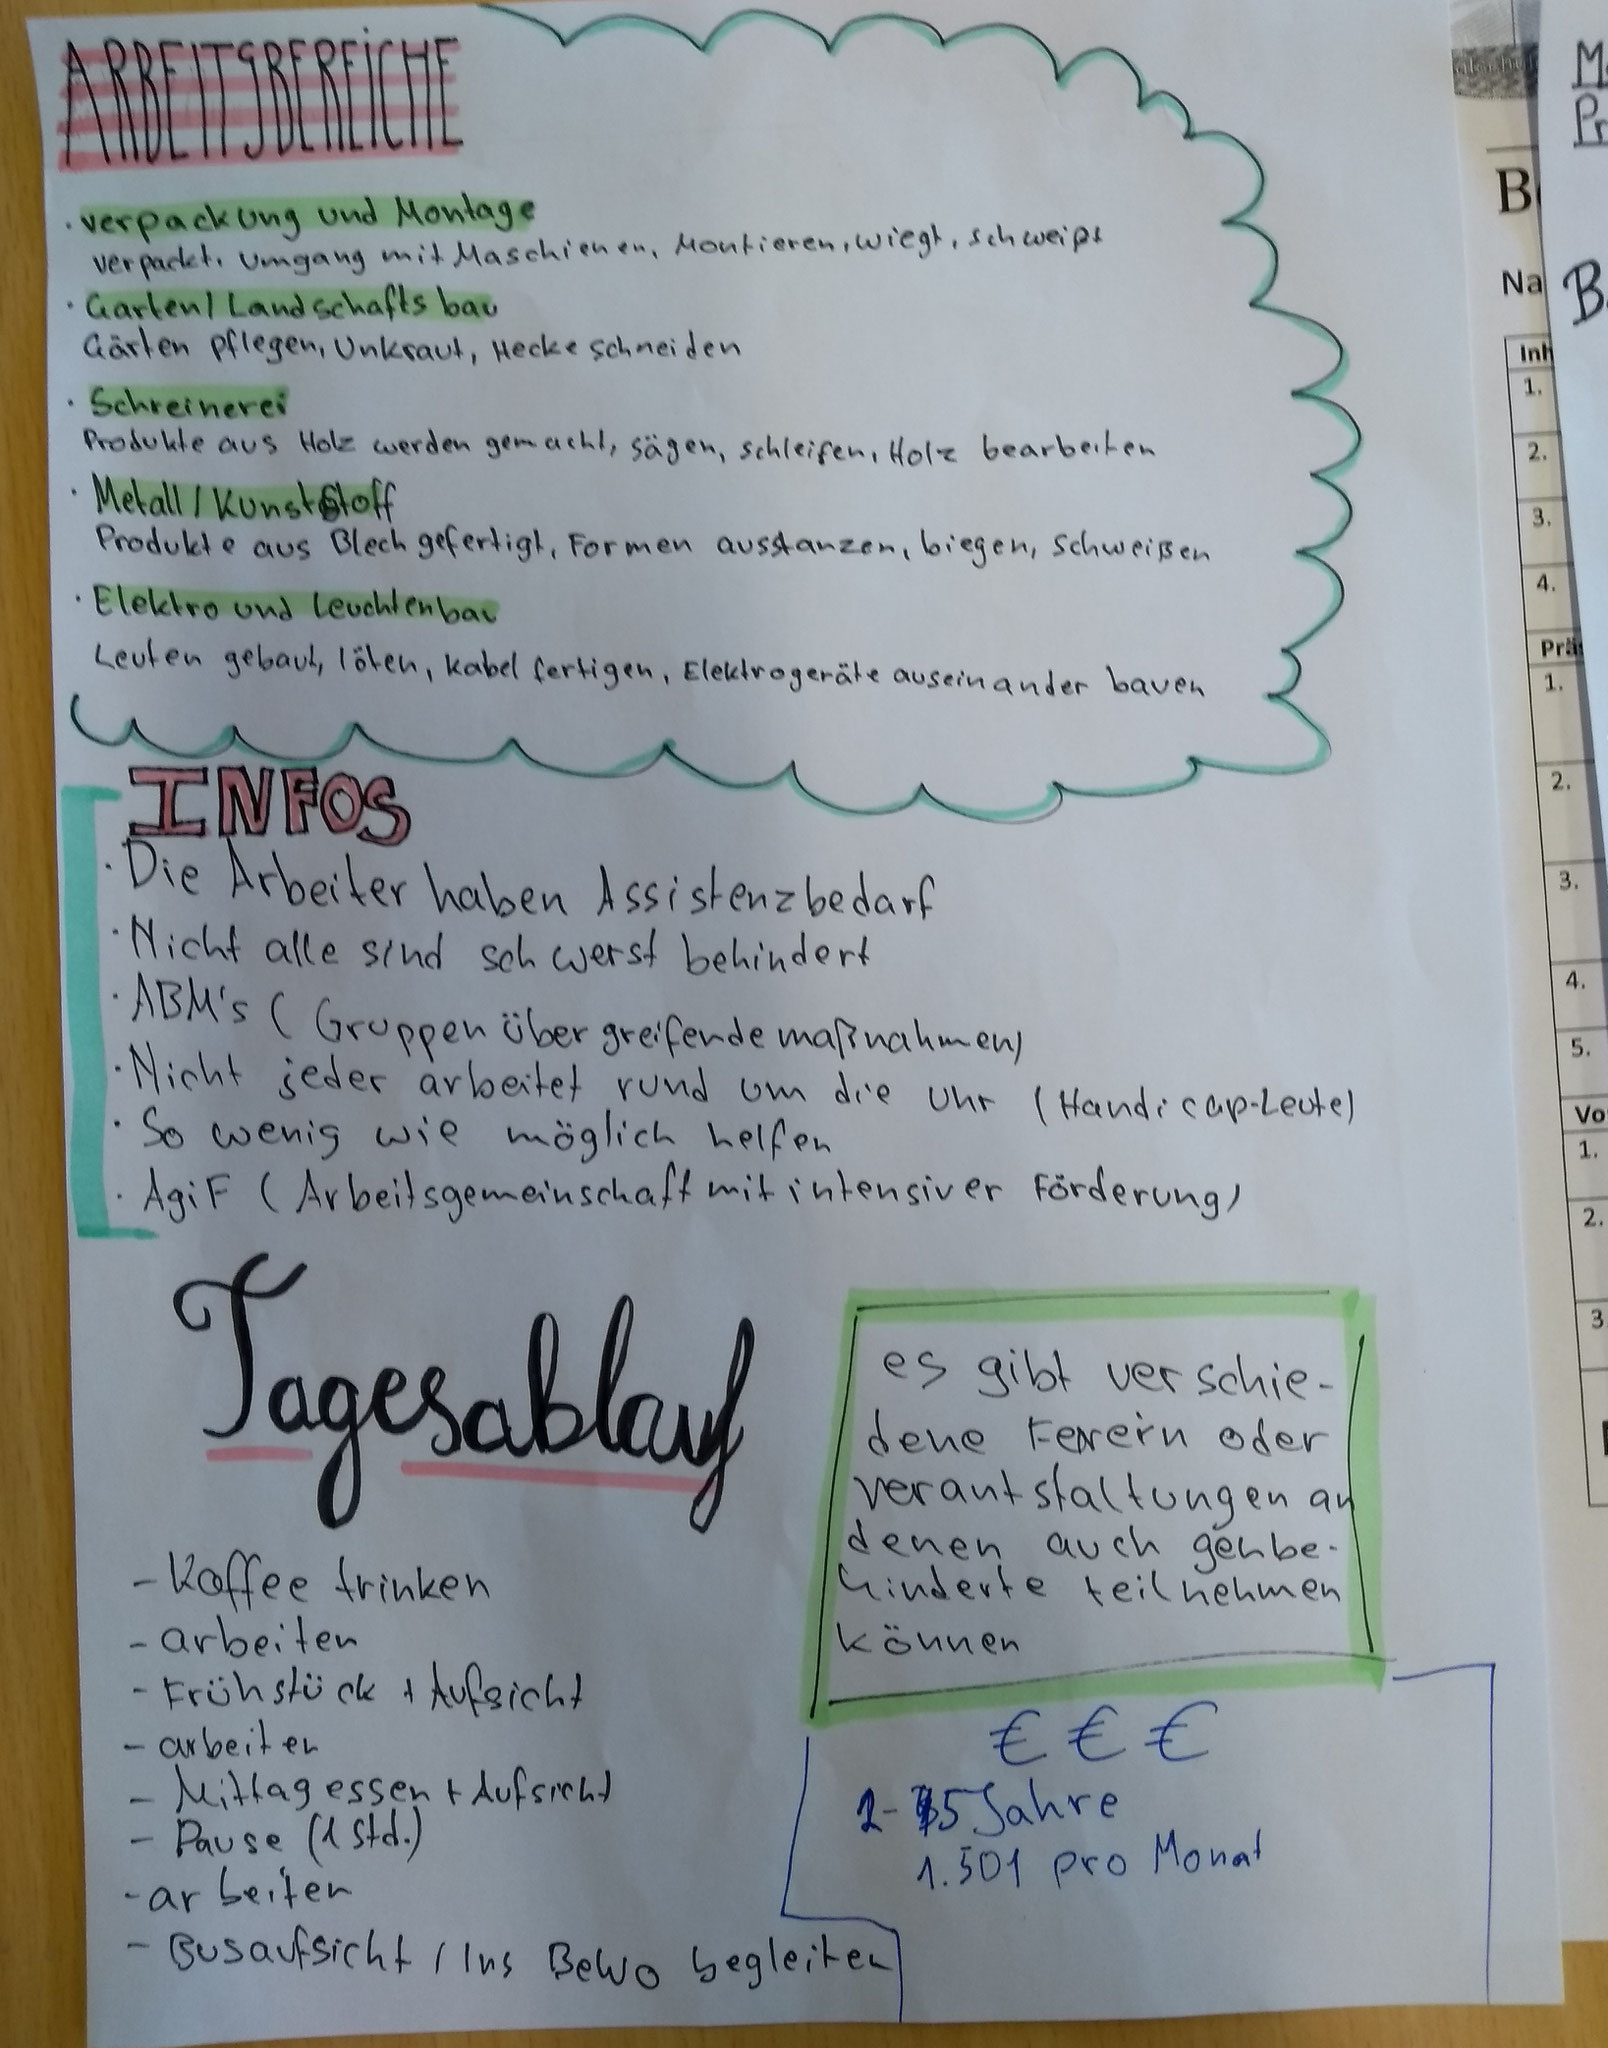 ARBEITSBEREICHE
· verpackung und Montage
verpackt, Umgang mit Maschienen, Montieren, wiegt, schweißt
· Garten/Landschaftsbau
Gärten pflegen, Unkraut, Hecke schneiden
· Schreinerei
Produkte aus Holz werden gemacht, sägen, schleifen, Holz bearbeiten
· Metall/Kunststoff
Produkte aus Blech gefertigt, Formen ausstanzen, biegen, schweißen
· Elektro und Leuchtenbau
Leuten gebaut, löten, Kabel fertigen, Elektrogeräte auseinander bauen
INFOS
· Die Arbeiter haben Assistenzbedarf
· Nicht alle sind schwerst behindert
· ABM's (Gruppenübergreifende maßnahmen)
· Nicht jeder arbeitet rund um die Uhr (Handicap-Leute)
· So wenig wie möglich helfen
· AgiF (Arbeitsgemeinschaft mit intensiver Förderung)
Tagesablauf
- Koffee trinken
- arbeiten
- Frühstück + Aufsicht
- arbeiten
- Mittagessen + Aufsicht
- Pause (1 Std.)
- arbeiten
- Busaufsicht / Ins BeWo begleiten
es gibt verschie-
dene Feiern oder
verantstaltungen an
denen auch gehbe-
hinderte teilnehmen
können
€ € €
5 Jahre
1.501 pro Monat
M
Pr
B
Na
B
Inh
1.
2.
3.
4.
Prä
1.
2.
3.
4.
5.
Vo
1.
2.
3